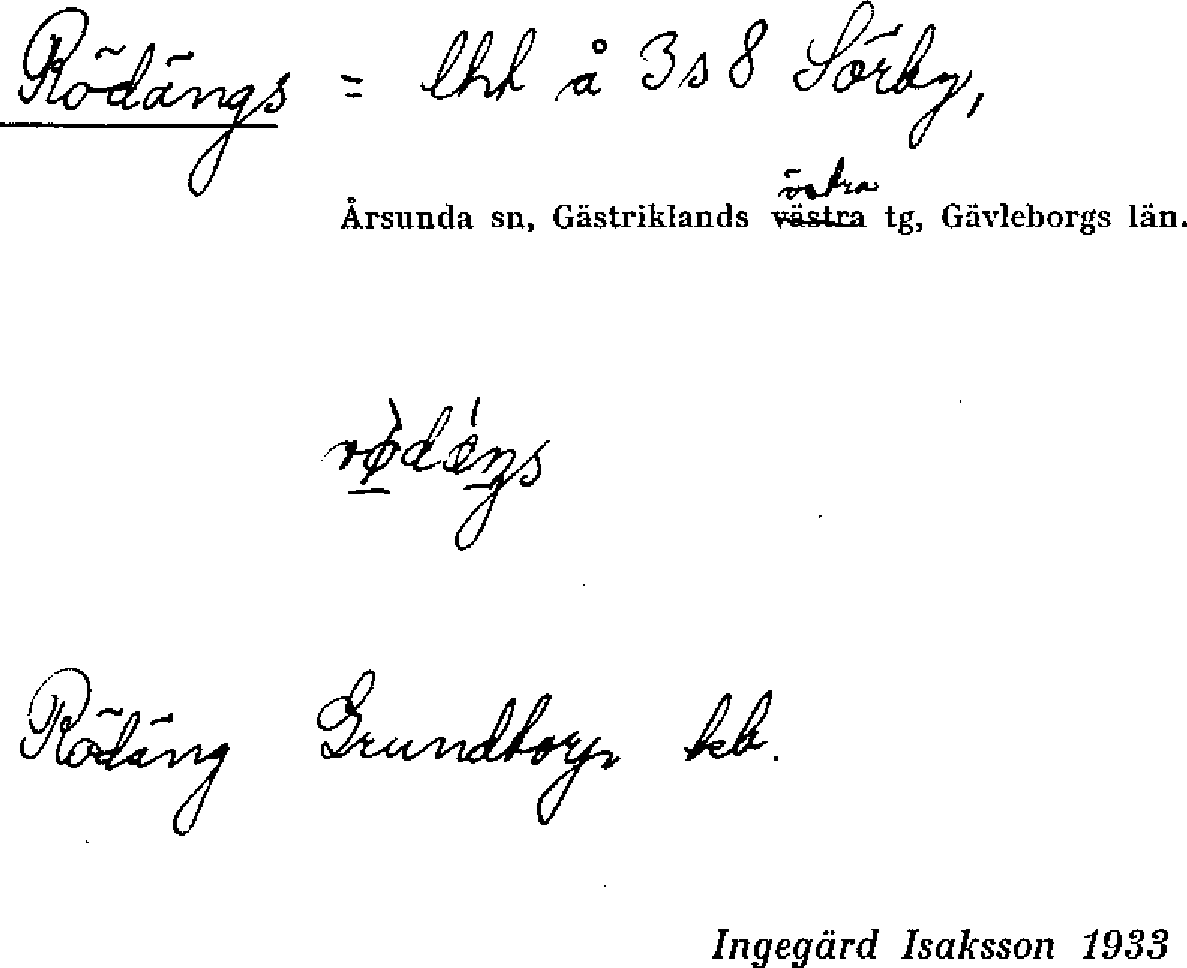 Rödängs = lht å 3s8 Sörby,
östra
Årsunda sn, Gästriklands västra tg, Gävleborgs län.
rø̀déŋs
Rödäng Grundborgs kb.
Ingegärd Isaksson 1933